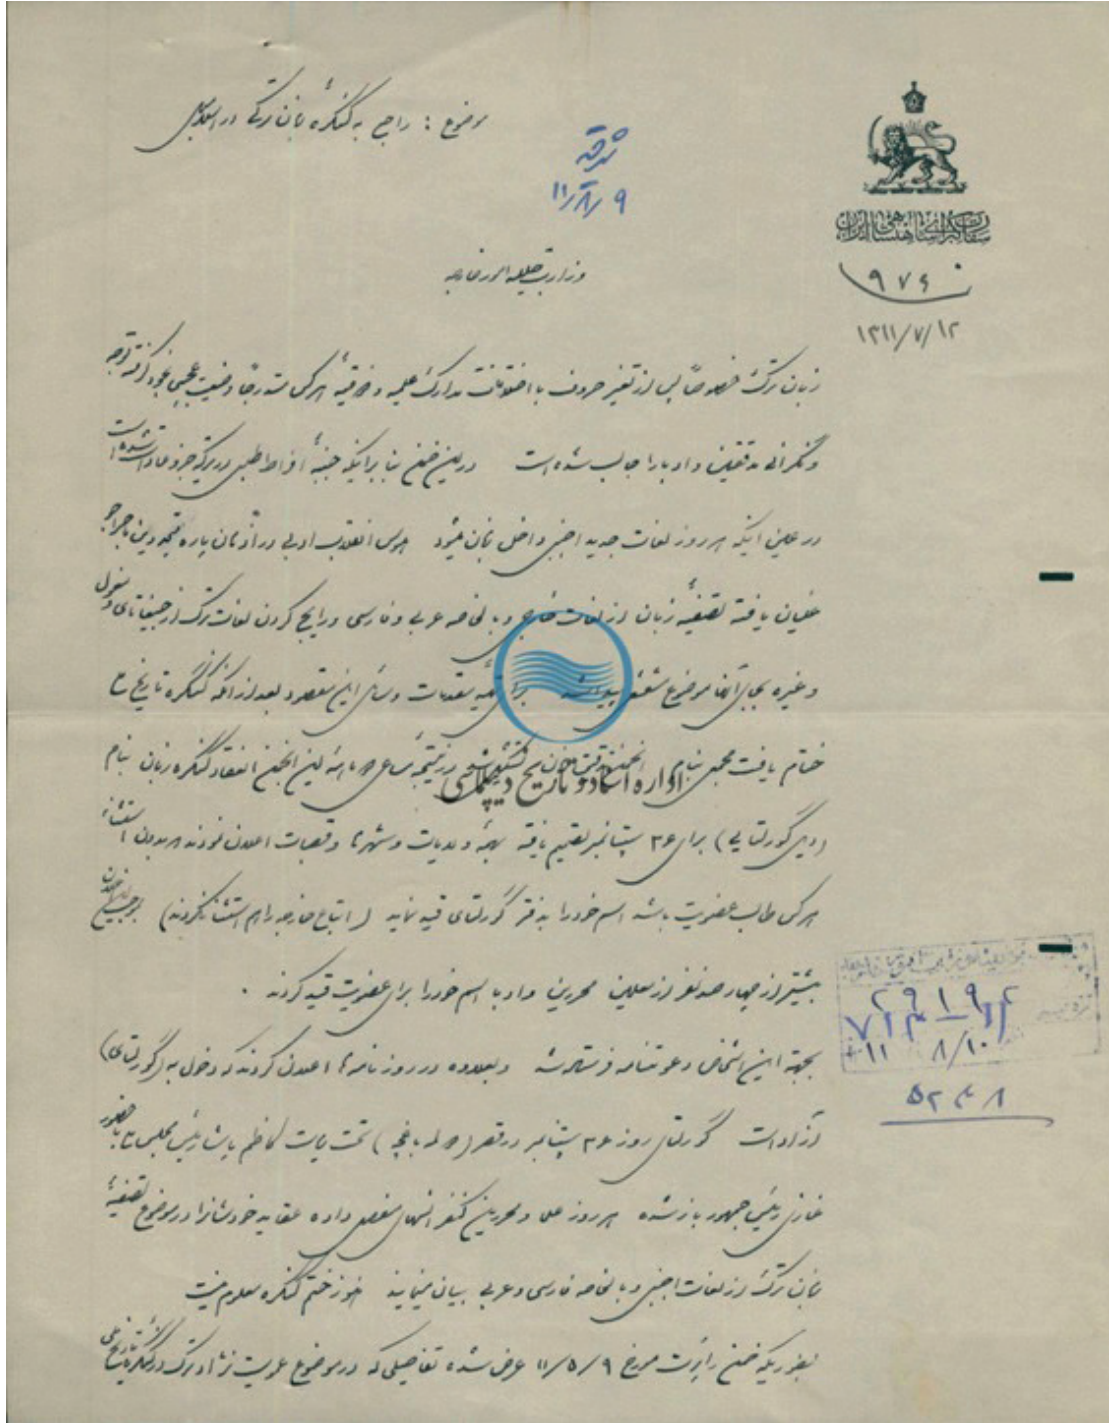 موضوع : راجع به کنگره زبان ترکی در اسلامبول
شرق
۱۱/۸/۹
سفارت کبرای شاهنشاهی ایران
۹۷۶
۱۳۱۱/۷/۱۲
وزارت جلیله امور خارجه
زبان ترک خصوصاً پس از تغییر حروف با اختلافات مدارک علمیه و ذوقیهٔ هر کس متدرجاً وضعیت عجیبی بخود گرفته توجه
و نگرانی مدققین و ادبا را جالب شده است در این ضمن بنا بر اینکه جنبهٔ افراط طلبی در ترکیه جزو عادات شده است
در عین اینکه هر روز لغات جدید اجنبی داخل زبان میشود هوس انقلاب ادبی در
غلیان یافته تصفیهٔ زبان از لغات خارجی و بالخاصه عربی و فارسی و رایج کردن لغات ترک از جغتای و مغول
و غیره بجای آنها موضوع پیدا شد برای تهیه مقدمات و وسائل این مقصود بعد از آنکه کنگره تاریخ
ختام یافت مجمعی بنام انجمن تشکیل شد در نتیجه مساعی این انجمن انعقاد کنگره زبان بنام
اداره اسناد و تاریخ دیپلماسی
(دیل گورلتایی) برای ۲۶ سپتامبر تصمیم یافته بهمهٔ ولایات و شهرها و قصبات اعلان نمودند بدون استثناء
هر کس طالب عضویت باشد اسم خود را بدفتر گورلتای قید نماید (اتباع خارجه را هم استثنا نکردند)
بیشتر از چهارصد نفر از معلمین محررین و ادبا اسم خود را برای عضویت قید کردند .
بجهته این اشخاص دعوتنامه فرستاده شد و بعلاوه در روزنامه‌ها اعلان کردند که دخول به (گورلتای)
آزاد است گورلتای روز ۲۶ سپتامبر در قصر (دولمه باغچه) تحت ریاست کاظم پاشا رئیس مجلس با حضور
غازی رئیس جمهور باز شده هر روز علما و محررین کنفرانسهای مفصل داده عقاید خودشانرا در موضوع تصفیهٔ
زبان ترک از لغات اجنبی و بالخاصه فارسی و عربی بیان مینمایند هنوز ختم کنگره معلوم نیست
بطوریکه ضمن راپرت مورخ ۱۱/۵/۹ عرض شده تفاصیلی که در موضوع نژاد ترک در کنگره تاریخ
۱۱ ۸/۱۰
۵۲۴۸